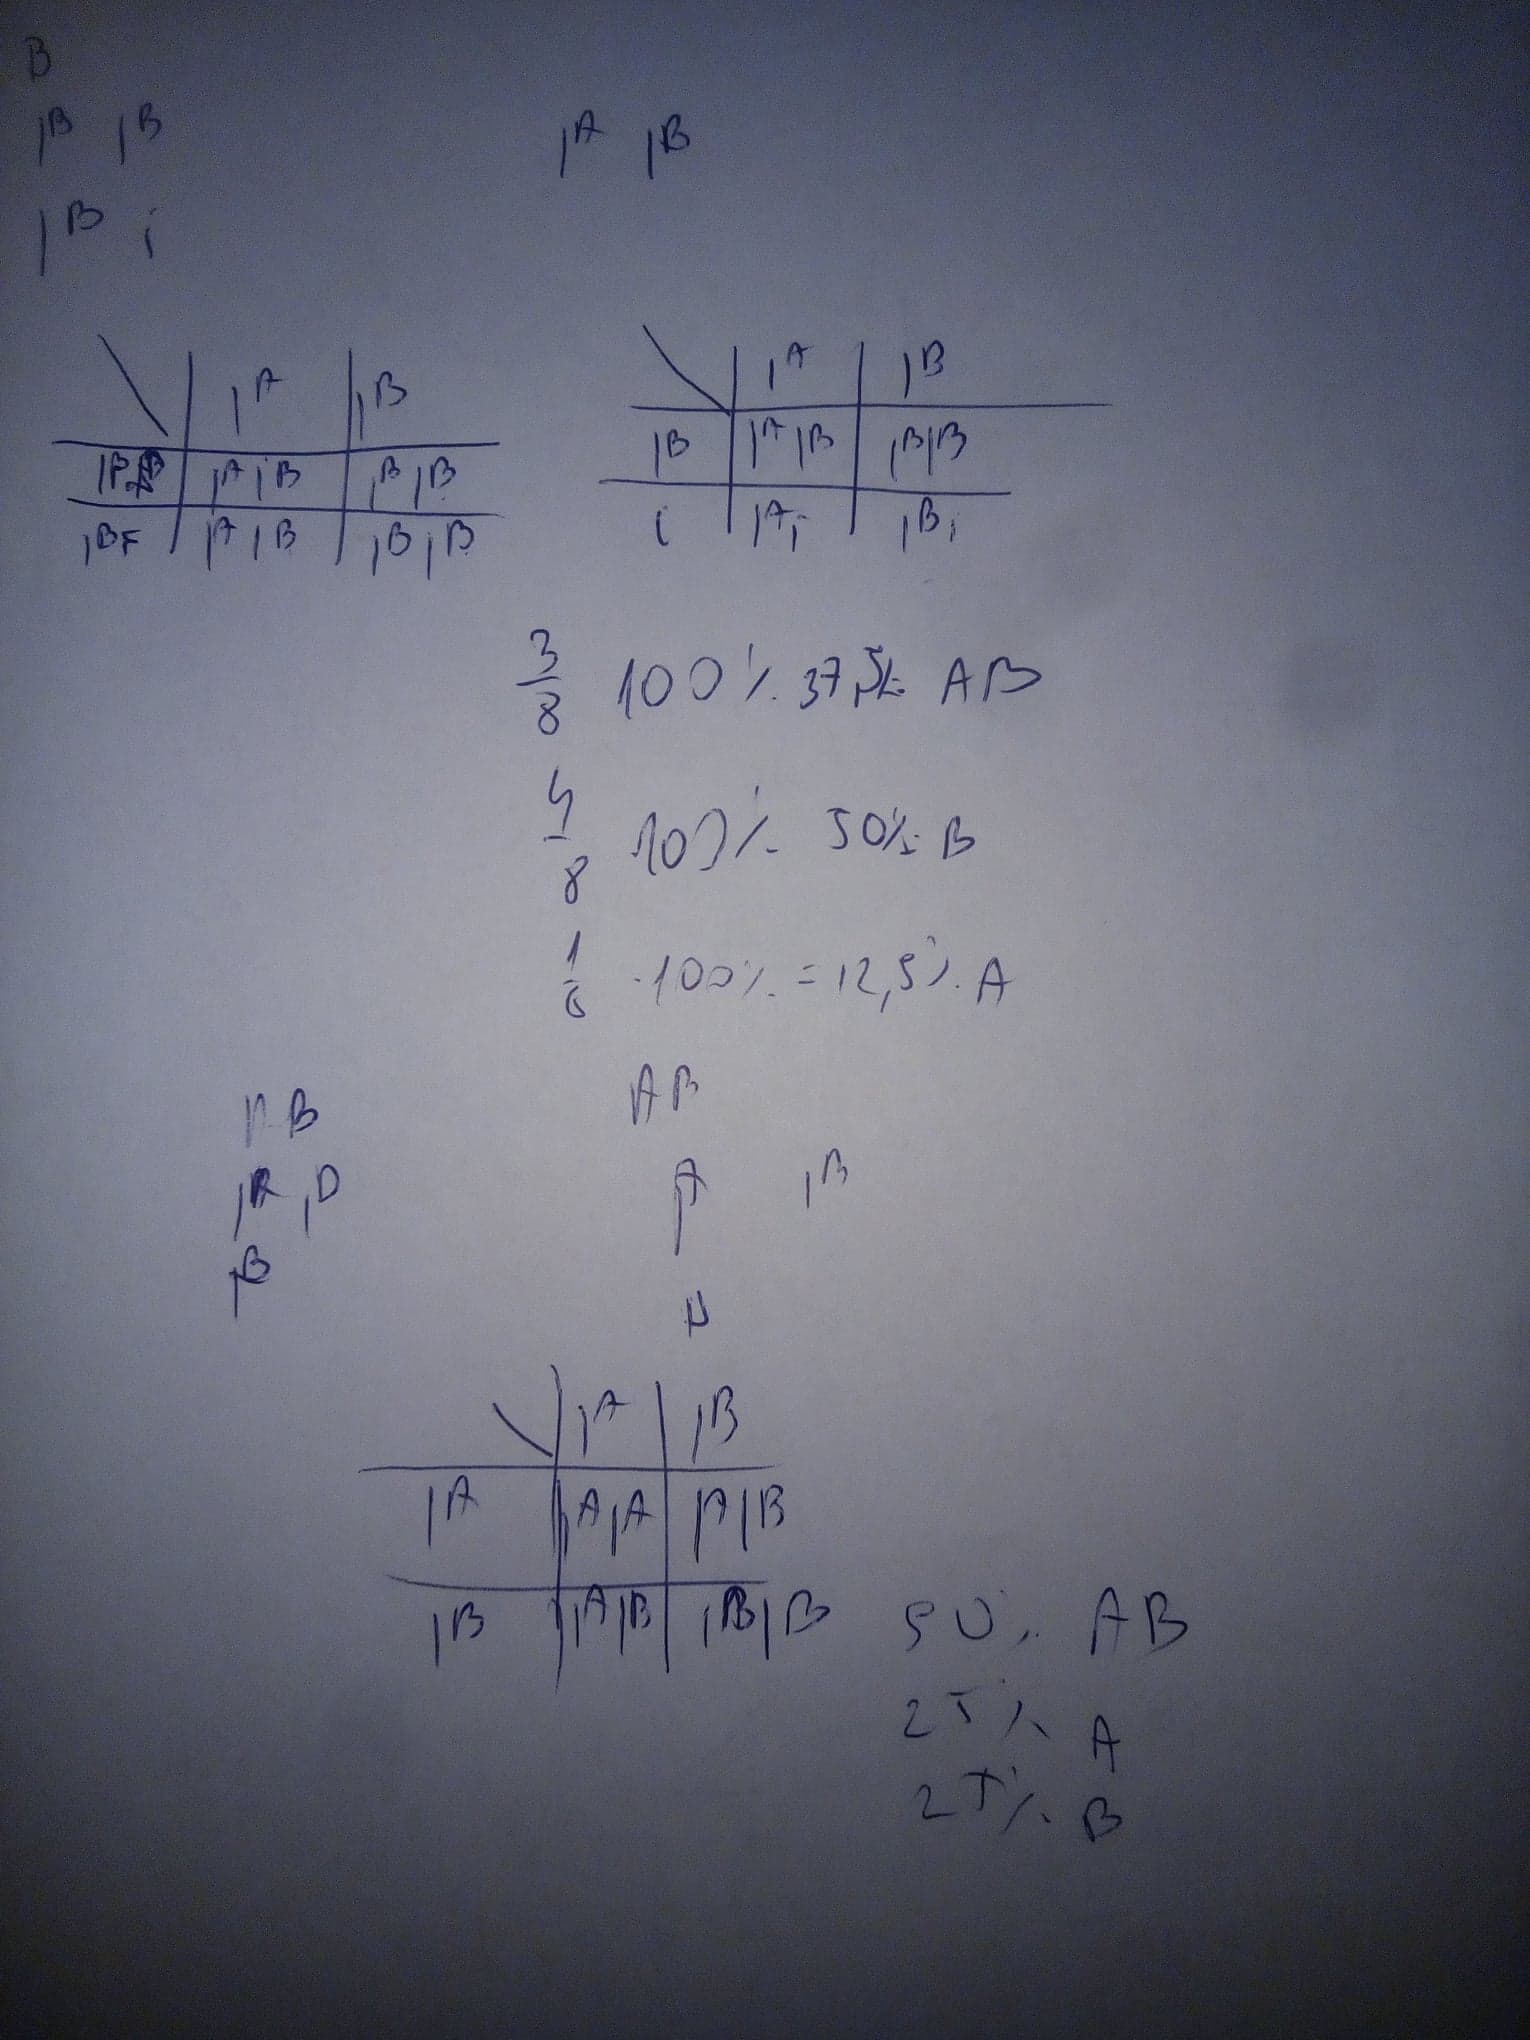 B
I^B I^B I^A I^B
I^B i
I^A I^B
I^B I^A I^B I^B I^B
I^B I^A I^B I^B I^B
I^A I^B
I^B I^A I^B I^B I^B
i I^A i I^B i
3/8 100% 37,5% AB
4/8 100% 50% B
1/8 · 100% = 12,5% A
AB AB
I^A I^B
I^B
I^A I^B
I^A I^A I^A I^A I^B
I^B I^A I^B I^B I^B 50% AB
25% A
25% B